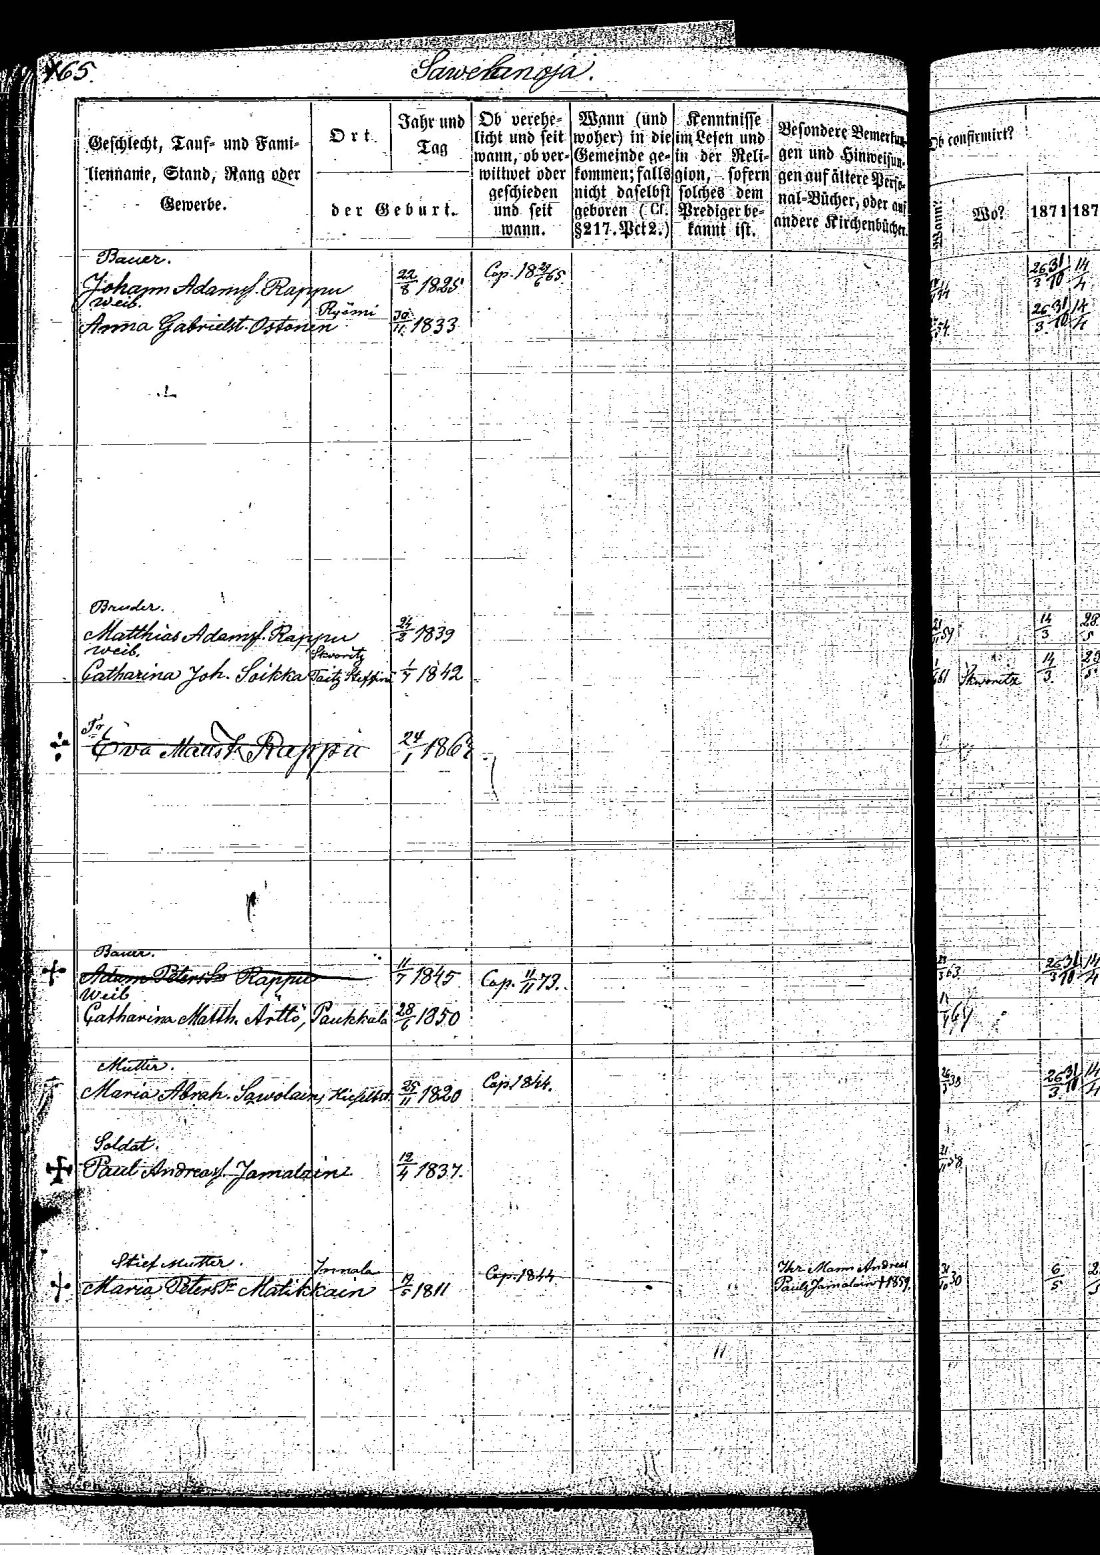 165
Sawelanoja.
Geschlecht, Tauf- und Fami-
lienname, Stand, Rang oder
Gewerbe.
Ort
Jahr und
Tag
der Geburt.
Ob verehe-
licht und seit
wann, ob ver-
wittwet oder
geschieden
und seit
wann.
Wann (und
woher) in die
Gemeinde ge-
kommen; falls
nicht daselbst
geboren (Cf.
§ 217. Pct 2.)
Kenntnisse
im Lesen und
in der Reli-
gion, sofern
solches dem
Prediger be-
kannt ist.
Besondere Bemerkun-
gen und Hinweisun-
gen auf ältere Perso-
nal-Bücher, oder auf
andere Kirchenbücher.
Ob confirmirt?
Wann?
Wo?
1871
187
Bauer.
Johann Adamsf. Rappu 22/8 1825 Cap. 18 /6 65. 26/3 31/10 14/4
Weib.
Anna Gabrielst. Ostonen Ryömi 30/11 1833 54 26/3 31/10 14/4
Bruder.
Matthias Adamsf. Rappu 24/2 1839 59 14/3 28/5
Weib. Skworitz
Catharina Joh. Soikka Taitz 1/7 1842 61 Skworitz 14/3
Tr
Eva Mattst. Rappu 24/1 186
Bauer.
Adam Peters Rappu 11/7 1845 Cap. 4/11 73. 63 26/3 31/10 14/4
Weib
Catharina Matth. Arttö, Paukkala 28/6 1850
Mutter.
Maria Abrah. Sawolain, 25/11 1820 Cap. 1844. 38 26/3 31/10 14/4
Soldat.
Paul Andreasf. Jamalaine 12/4 1837. 58
Stief Mutter. Innala
Maria Peters Tr Matikkain 19/5 1811 Cap. 1844 Ihr Mann Andreas 30 6/5
Paulf Jamalain † 1859.